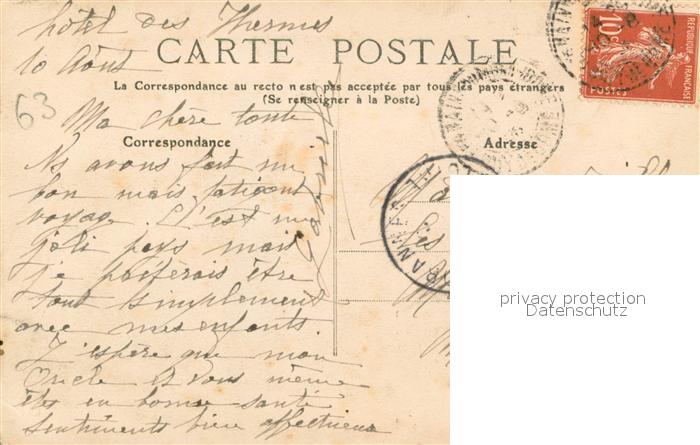 hôtel des Thermes
10 Août
CARTE POSTALE
La Correspondance au recto n'est pas acceptée par tous les pays étrangers
(Se renseigner à la Poste)
63
Ma chère tante
Correspondance
Adresse
Ns avons fait un
bon mais fatigant
voyage. C'est un
joli pays mais
je préférerais être
tout simplement
avec mes enfants.
J'espère que mon
Oncle et vous même
êtes en bonne santé
Sentiments bien affectueux
Gabrielle
10c
REPUBLIQUE FRANÇAISE
POSTES
privacy protection
Datenschutz